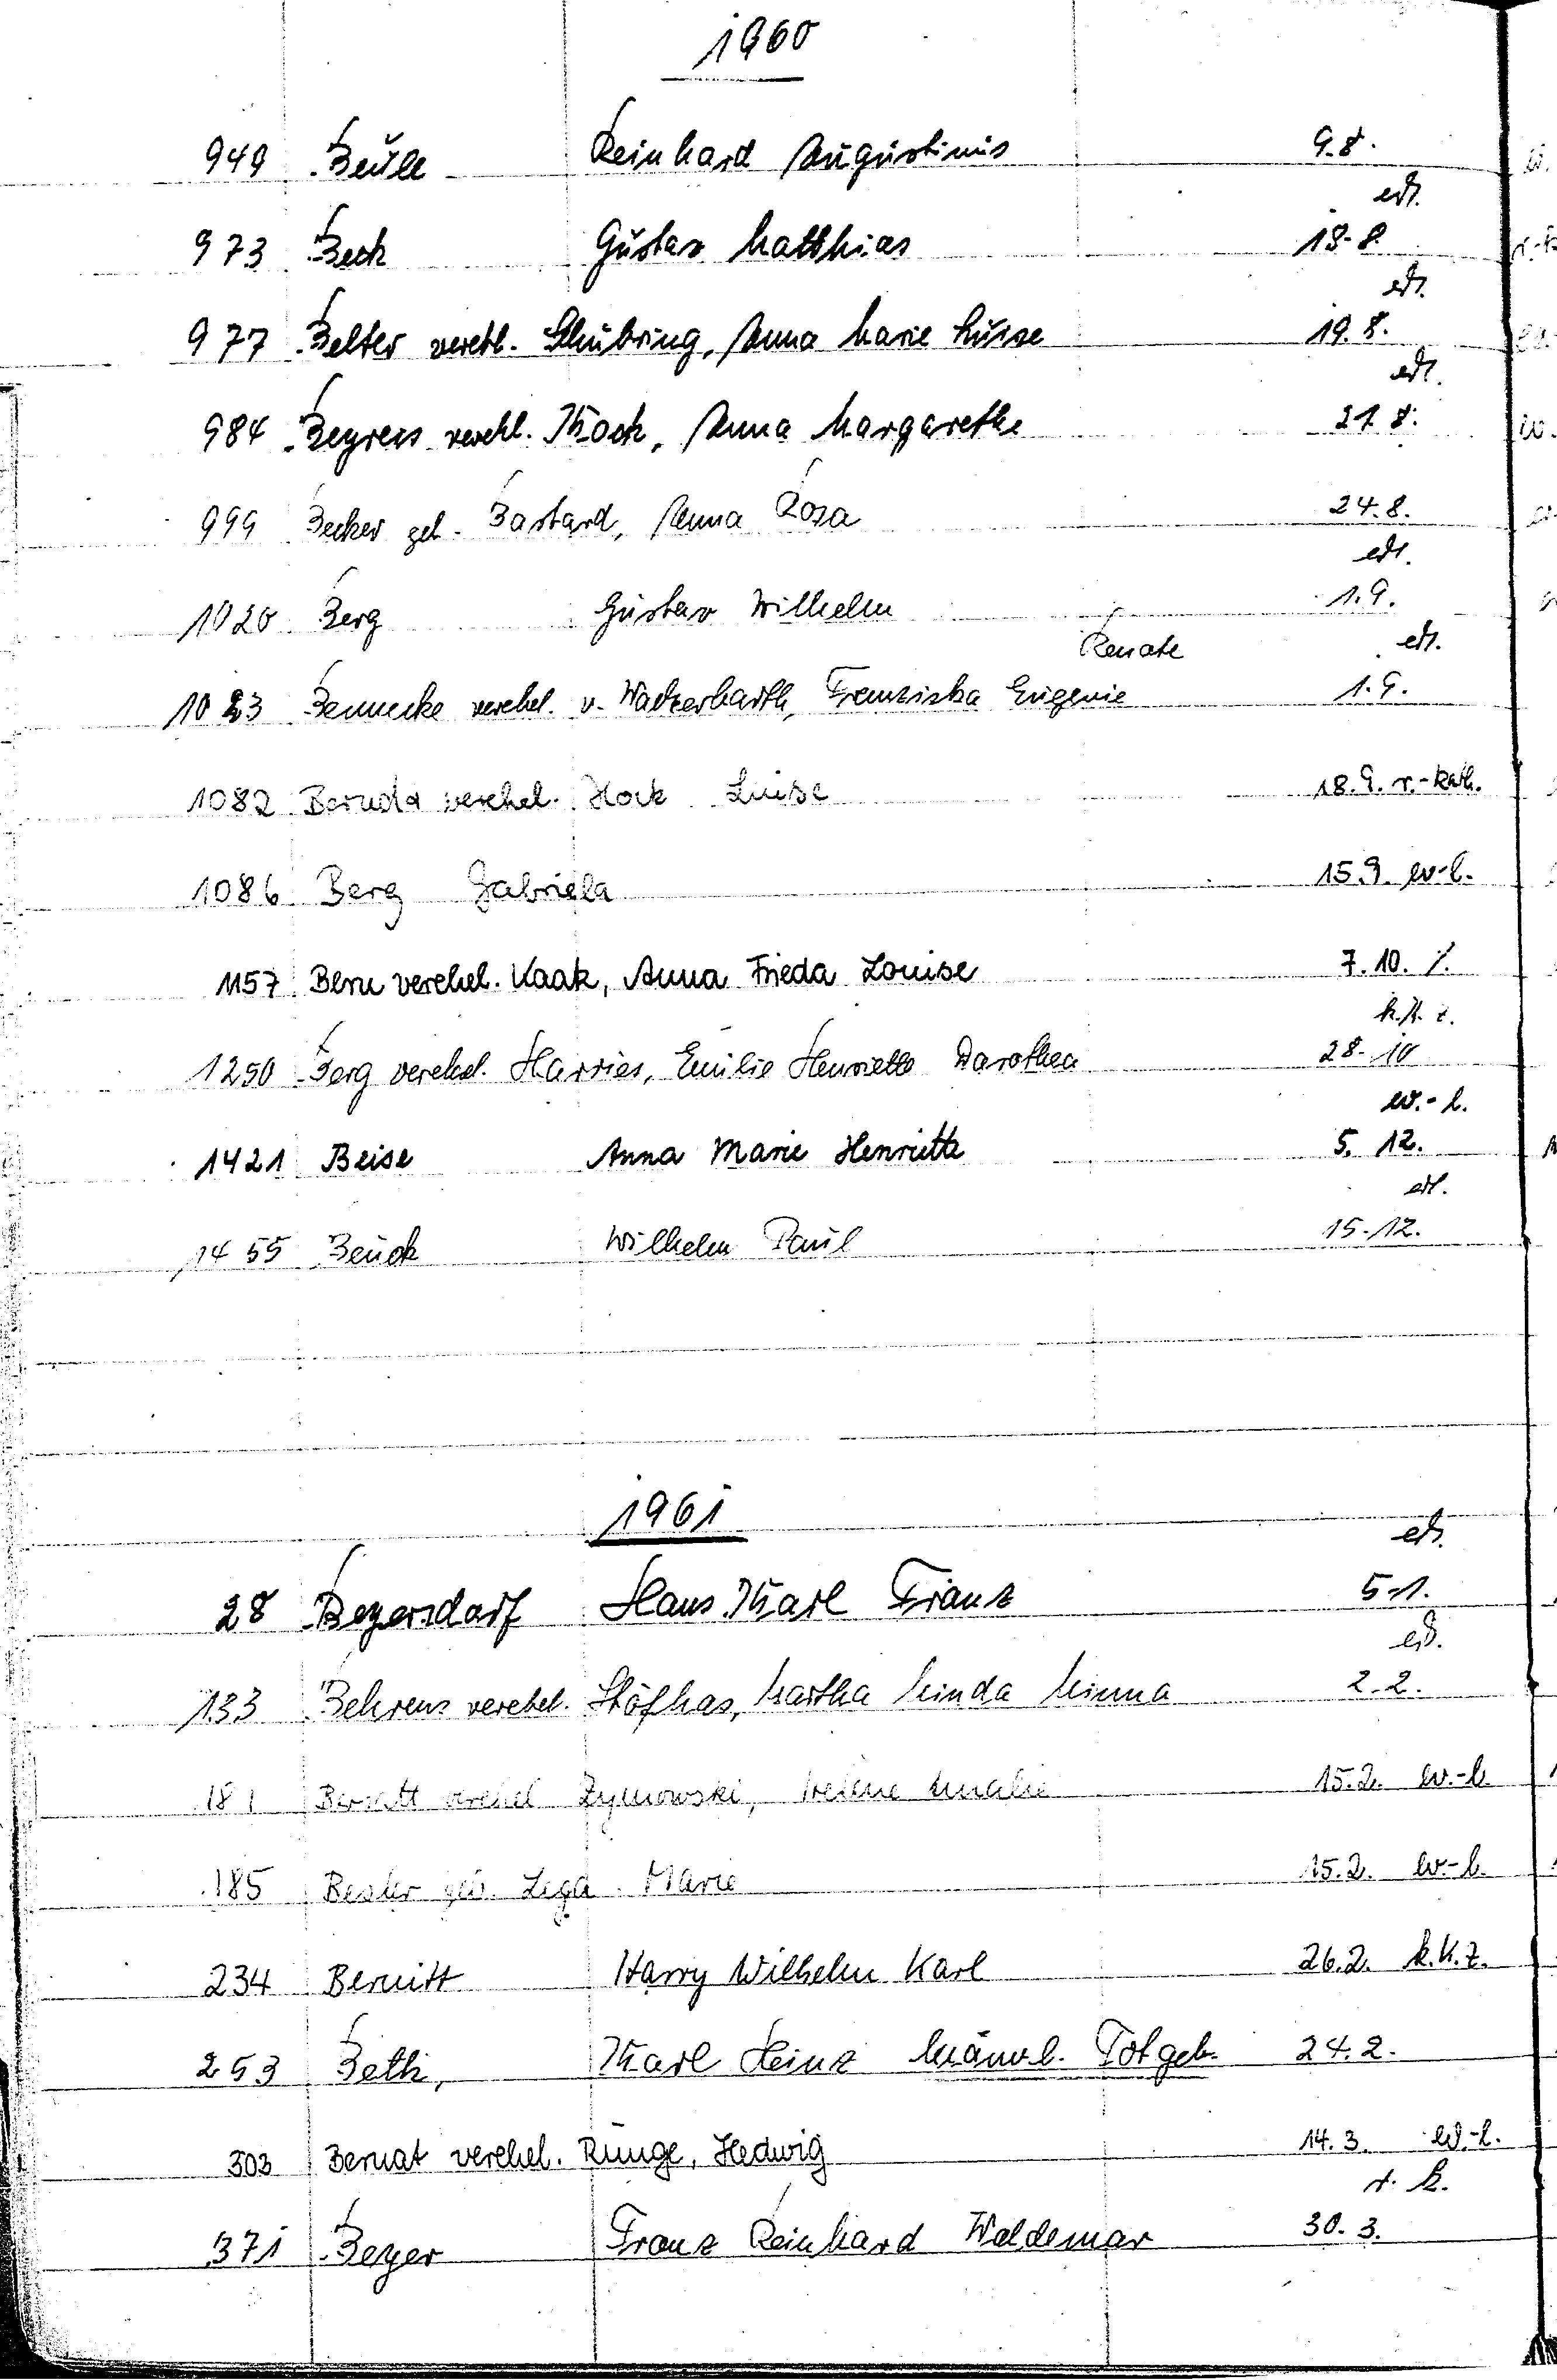 1960
949 Beule Reinhard Augustinus 9.8.
973 Beck Gustav Matthias 18.8.
977 Belter verehl. Schübring, Anna Marie Luise 19.8.
984 Beyreis verehl. Koch, Anna Margarethe 21.8.
999 Becker geb. Bastard, Anna Rosa 24.8.
1020 Berg Gustav Wilhelm 1.9.
Renate
1023 Bennecke verehel. v. Wackerbarth, Franziska Eugenie 1.9.
1082 verehel. Hock Luise 18.9. r.-kath.
1086 Berg Gabriela 15.9. ev-l.
1157 Bern verehel. Kaak, Anna Frieda Louise 7.10. /.
k.K.z.
1250 Berg verehel. Harries, Emilie Henriette Dorothea 28.10
ev.-l.
1421 Beise Anna Marie Henriette 5.12.
1455 Beuck Wilhelm Paul 15.12.
1961
28 Beyersdorf Hans Karl Franz 5.1.
133 Behrens verehel. Martha Linda Minna 2.2.
181 verehel Zymowski, 15.2. ev.-l.
185 geb. Lega Marie 15.2. ev.-l.
234 Bernitt Harry Wilhelm Karl 26.2. k.K.z.
253 Beth, Karl Heinz Männl. Totgeb. 24.2.
303 Bernat verehel. Runge, Hedwig 14.3. ev.-l.
r. k.
371 Beyer Franz Reinhard Waldemar 30.3.